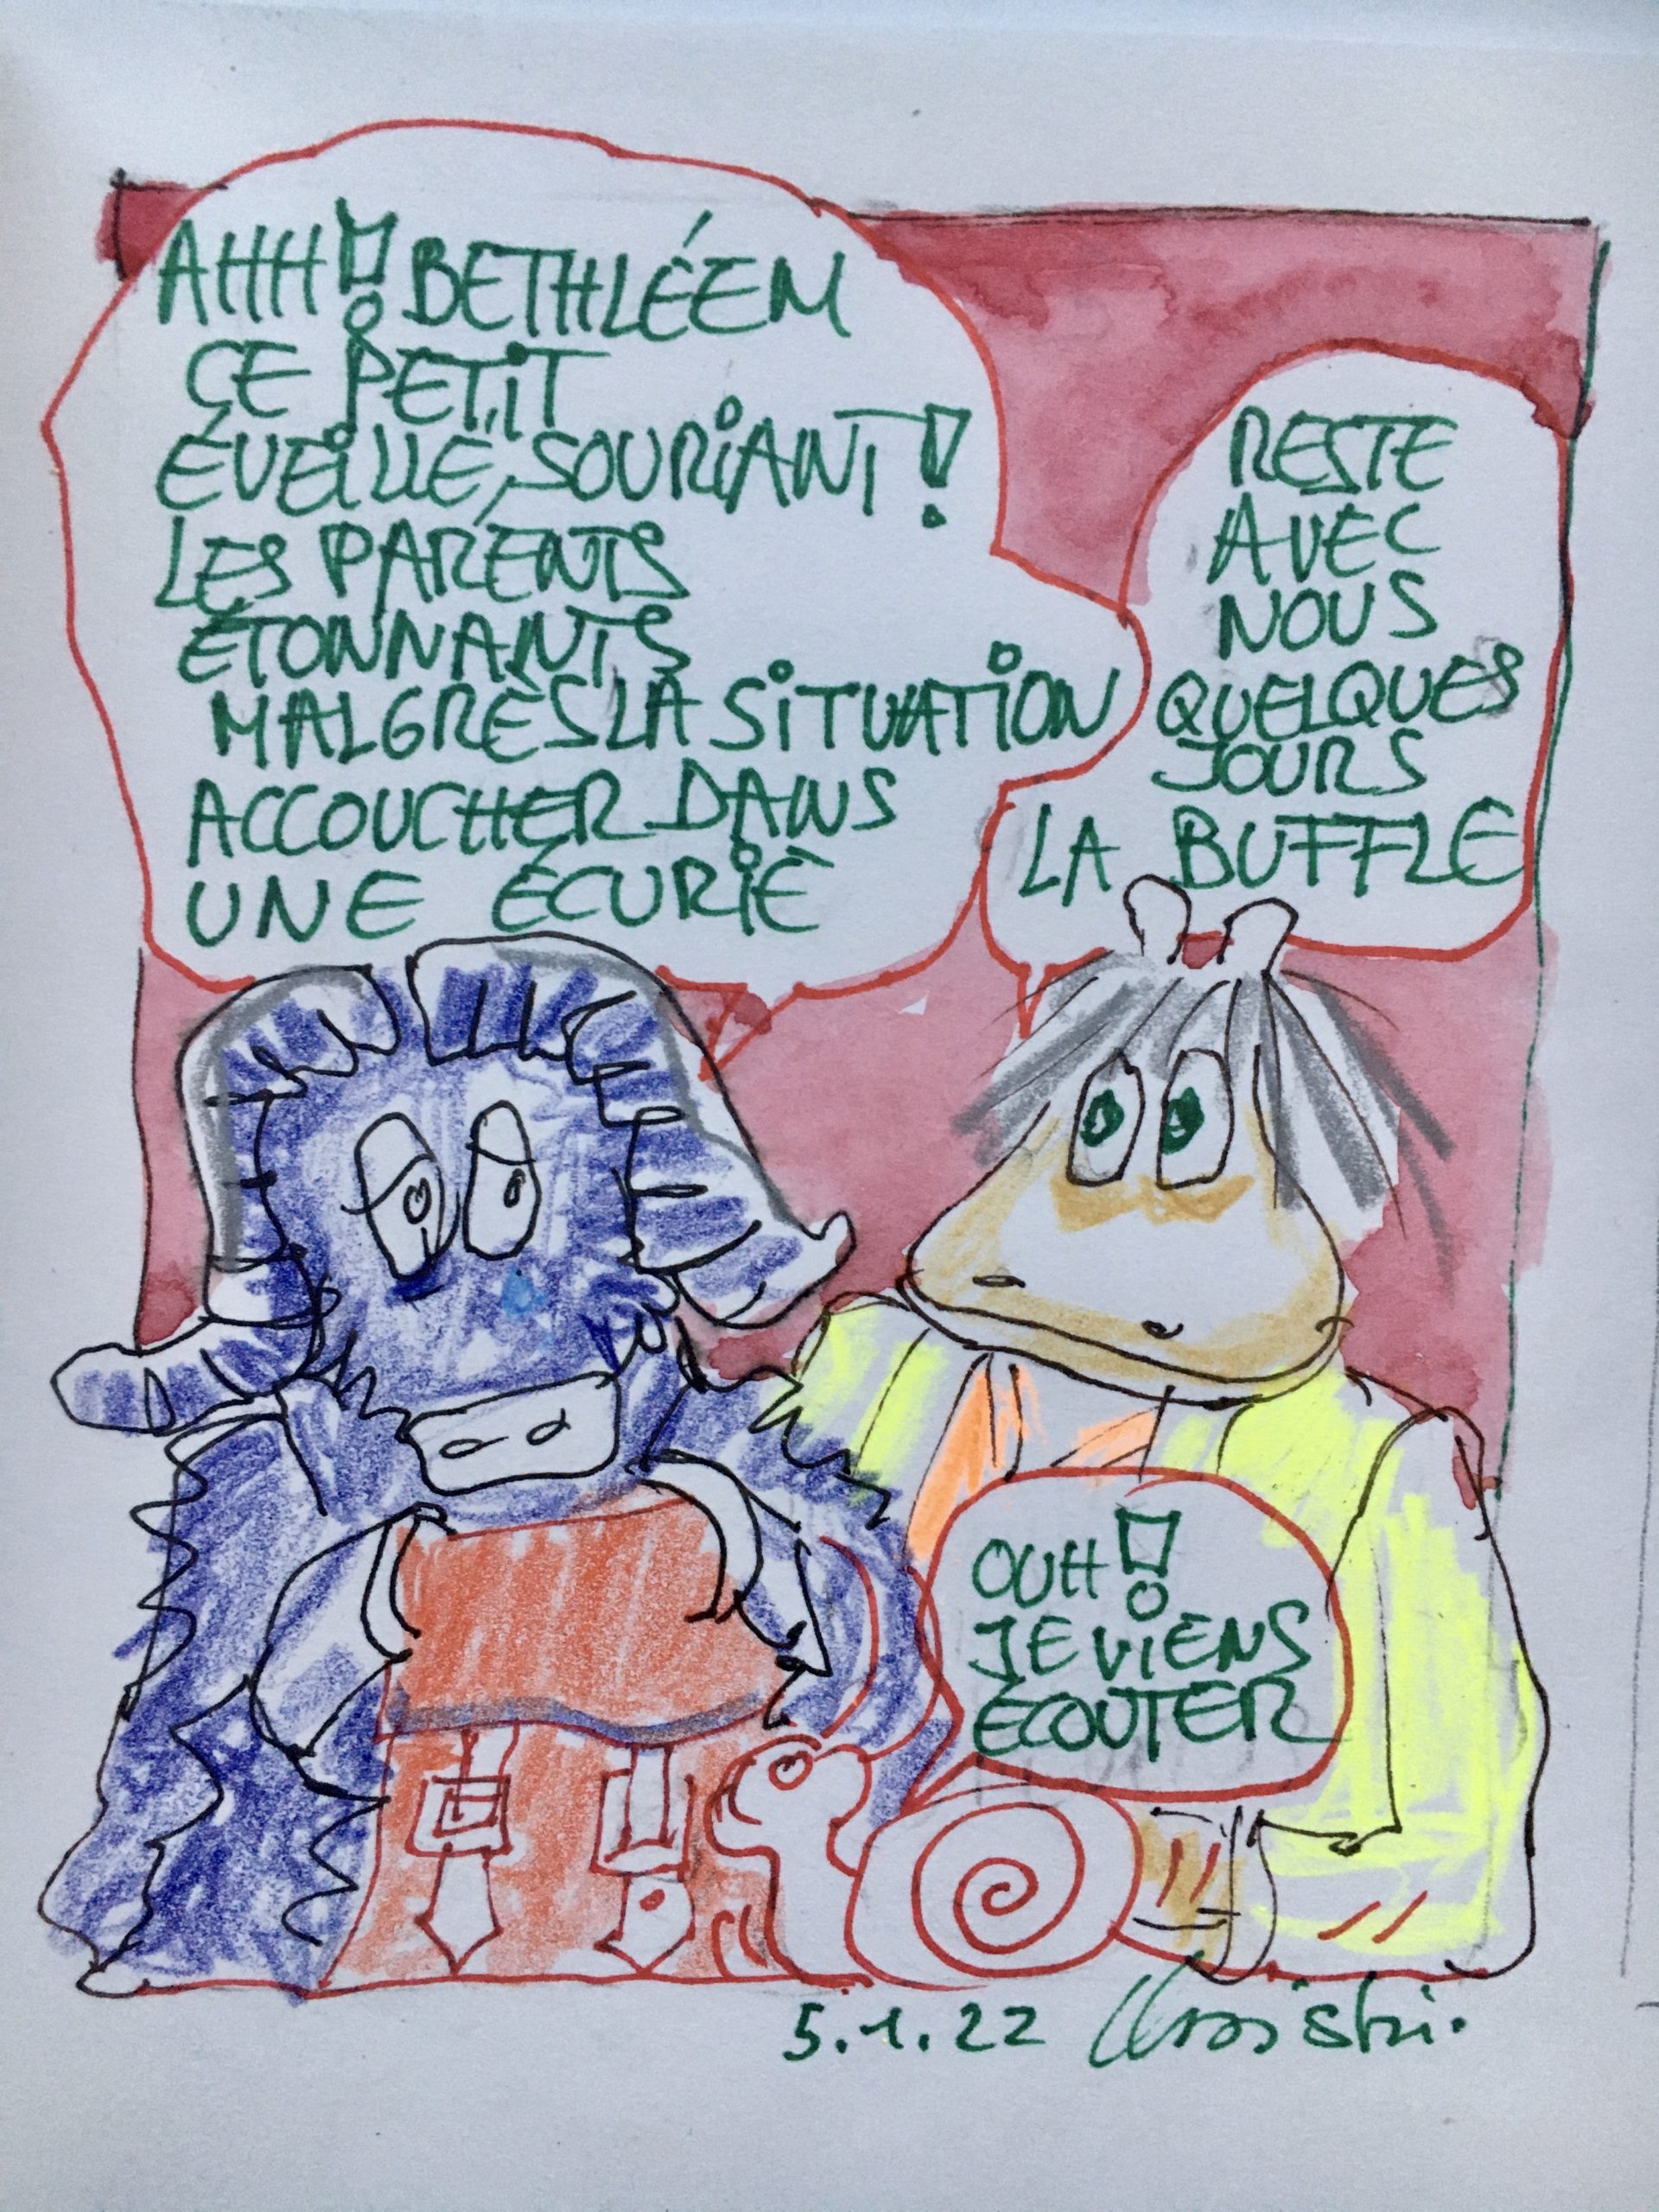 AHH! BETHLÉEM
CE PETIT
ÉVEILLÉ, SOURIANT!
LES PARENTS
ÉTONNANTS
MALGRÈS LA SITUATION
ACCOUCHER DANS
UNE ÉCURIE
RESTE
AVEC
NOUS
QUELQUES
JOURS
LA BUFFLE
OUH!
JE VIENS
ÉCOUTER
5.1.22